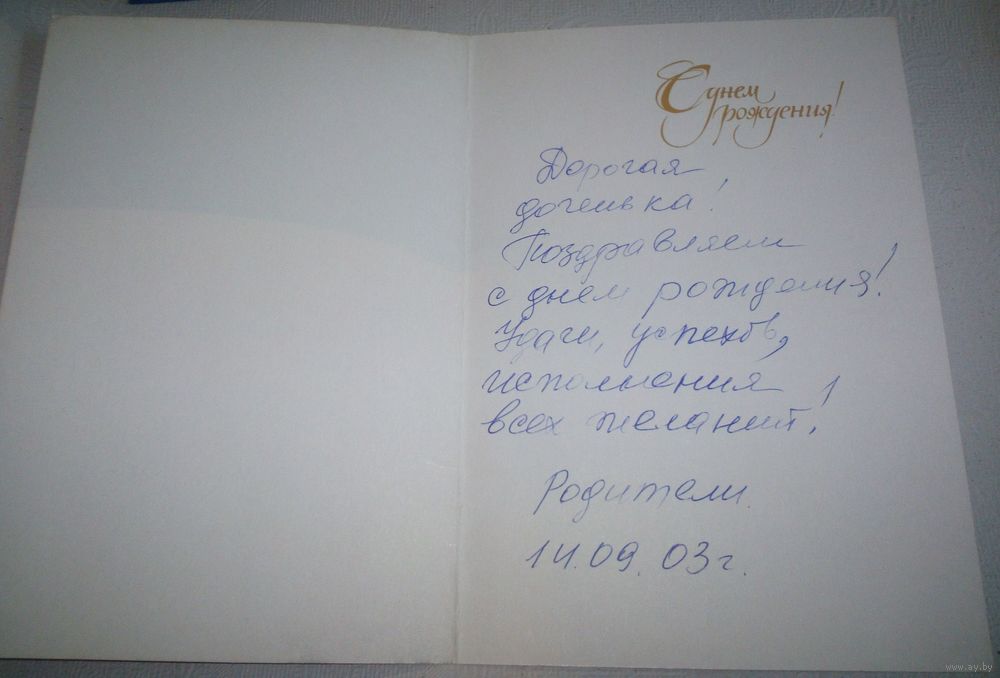 С днем
рождения!
Дорогая
доченька!
Поздравляем
с днем рождения!
Удачи, успехов,
исполнения
всех желаний!
Родители.
14.09.03г.
www.ay.by